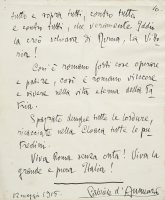 10
tutto e sopra tutti, contro tutto
e contro tutti, che veramente Iddio
la creò schiava di Roma, la Vitto
ria!
Così è romano forti cose operare
e patire, così è romano vincere
e vivere nella vita eterna della Pa
tria.
Spazzate dunque tutte le lordure,
ricacciate nella cloaca tutte le pu
tredini.
Viva Roma senza onta! Viva la
grande e pura Italia!
12 maggio 1915.
Gabriele d'Annunzio